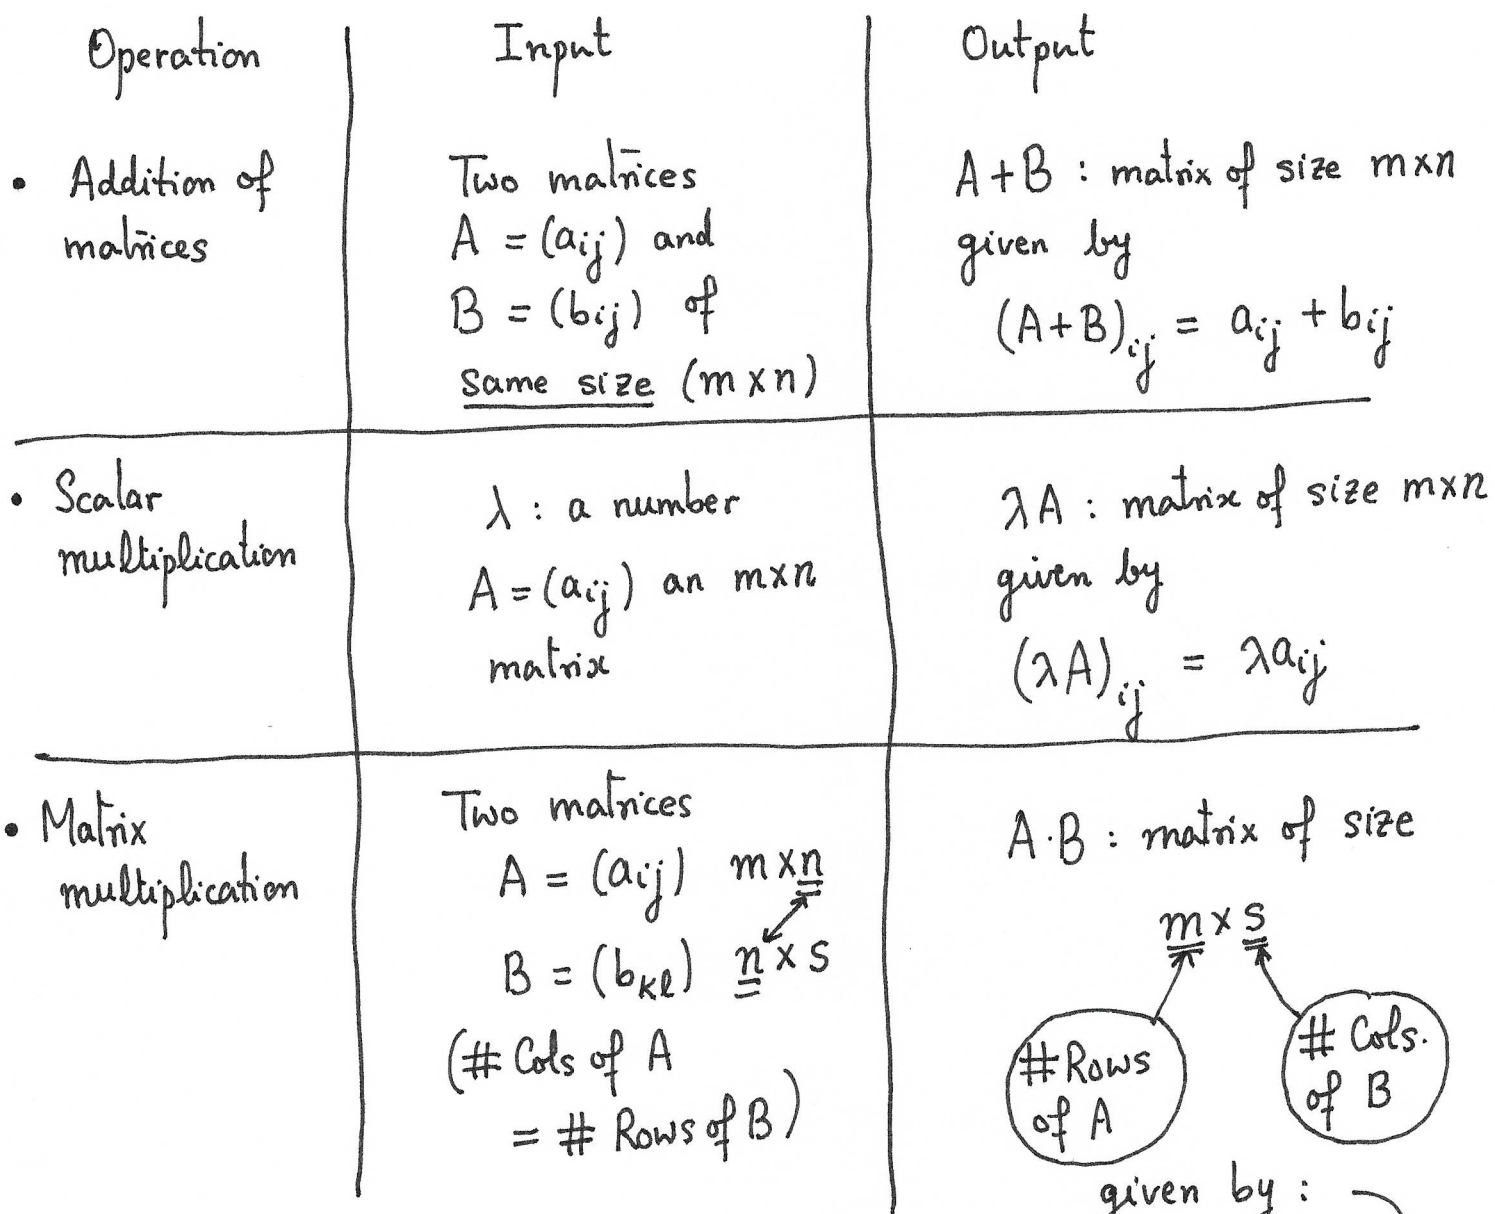 Operation
Input
Output
• Addition of
matrices
Two matrices
A = (aij) and
B = (bij) of
same size (m×n)
A+B : matrix of size m×n
given by
(A+B)ij = aij + bij
• Scalar
multiplication
λ : a number
A = (aij) an m×n
matrix
λA : matrix of size m×n
given by
(λA)ij = λaij
• Matrix
multiplication
Two matrices
A = (aij) m×n
B = (bkl) n×s
(# Cols of A
= # Rows of B)
A·B : matrix of size
m×s
# Rows
of A
# Cols.
of B
given by :